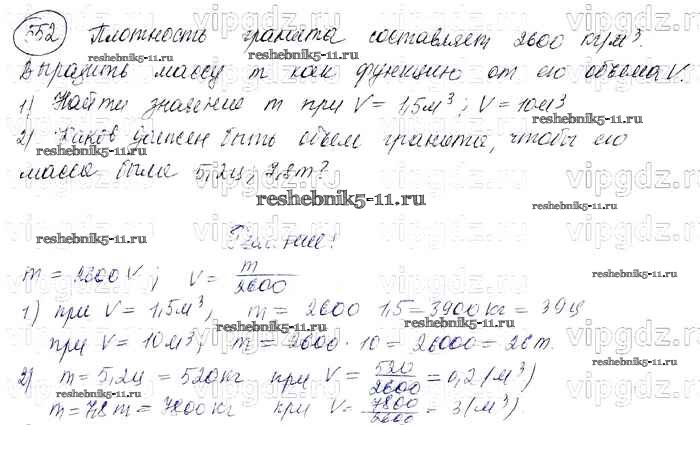 552 Плотность гранита составляет 2600 кг/м³.
Выразить массу m как функцию от его объема V.
1) Найти значение m при V = 1,5 м³; V = 10 м³
2) Каков должен быть объем гранита, чтобы его
масса была 5,2ц, 7,8т?
Решение:
m = 2600 V; V = m/2600
1) при V = 1,5 м³, m = 2600 1,5 = 3900 кг = 39ц
при V = 10 м³; m = 2600 · 10 = 26000 = 26т.
2) m = 5,2ц = 520кг при V = 520/2600 = 0,2 (м³)
m = 7,8т = 7800кг при V = 7800/2600 = 3 (м³)
reshebnik5-11.ru
vipgdz.ru